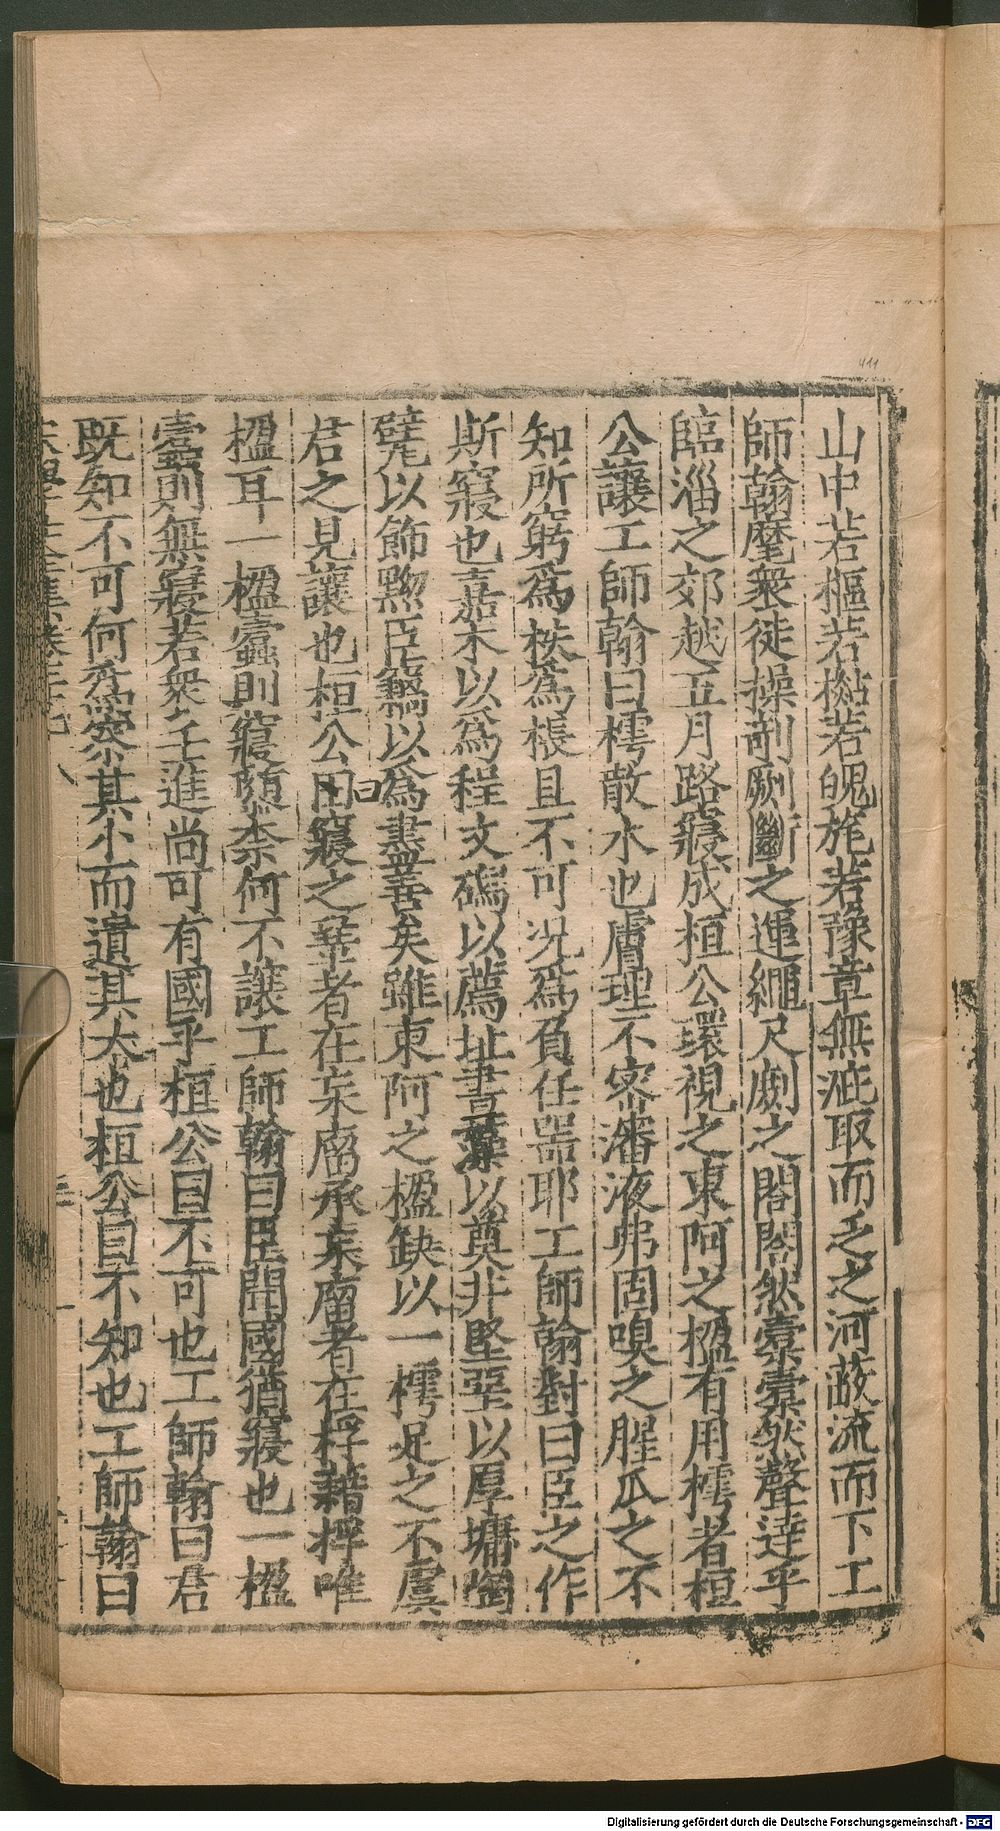 山中若樞若檆若㿪旄若豫章無疵取而乏之河疏流而下工
師翰麾衆徒操剞劂斷之運繩尺劇之閣閣然橐橐然聲達乎
臨淄之郊越五月路寢成桓公環視之東阿之楹有用樗者桓
公讓工師翰曰樗散木也膚理不密瀋液弗固嗅之腥爪之不
知所窮爲栱爲棖且不可況爲負任噐耶工師翰對曰臣之作
斯寢也嘉木以爲桯文礎以薦址畫藻以奠井堅堊以厚墉陶
甓以飾黝臣竊以爲盡善矣雖東阿之楹缺以一樗足之不虞
君之見讓也桓公曰寢之鞏者在宋廇承宋廇者在桴藉桴唯
楹耳一楹蠹則寢隳柰何不讓工師翰曰臣聞國猶寢也一楹
蠹則無寢若衆壬進尚可有國乎桓公曰不可也工師翰曰君
既知不可何爲察其小而遺其大也桓公曰不知也工師翰曰
曰
411
Digitalisierung gefördert durch die Deutsche Forschungsgemeinschaft - DFG